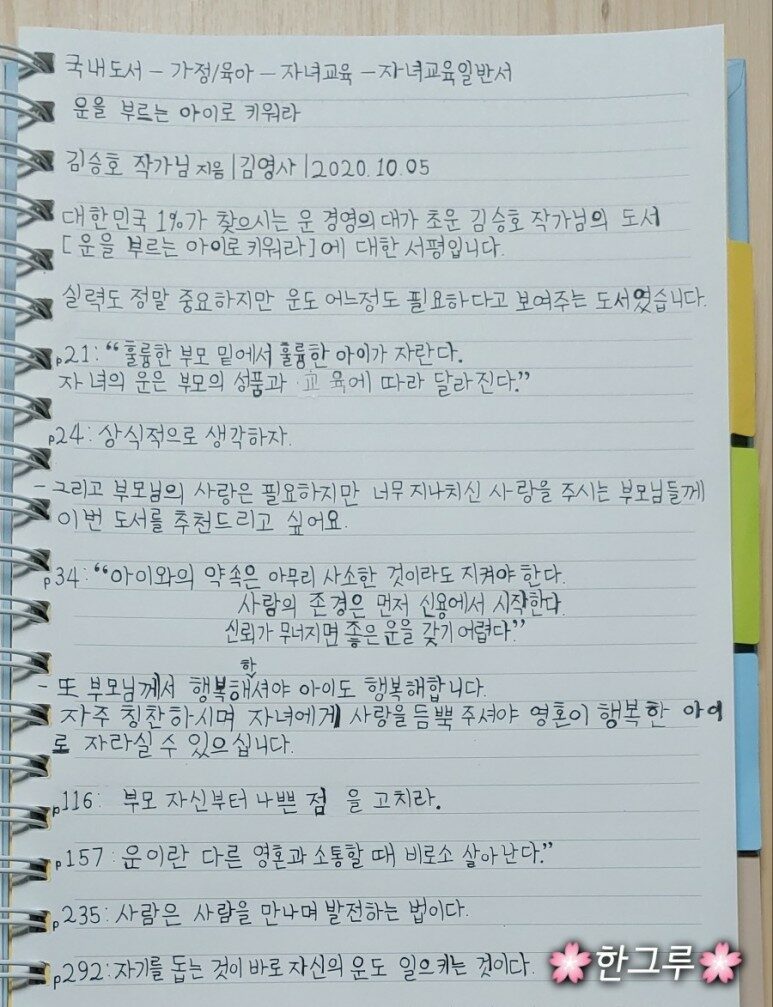 국내도서 - 가정/육아 - 자녀교육 - 자녀교육일반서
운을 부르는 아이로 키워라
김승호 작가님 지음 | 김영사 | 2020.10.05
대한민국 1%가 찾으시는 운 경영의 대가 초운 김승호 작가님의 도서
[운을 부르는 아이로 키워라]에 대한 서평입니다.
실력도 정말 중요하지만 운도 어느정도 필요하다고 보여주는 도서였습니다.
p21: “훌륭한 부모 밑에서 훌륭한 아이가 자란다.
자녀의 운은 부모의 성품과 교육에 따라 달라진다.”
p24: 상식적으로 생각하자.
- 그리고 부모님의 사랑은 필요하지만 너무 지나치신 사랑을 주시는 부모님들께
이번 도서를 추천드리고 싶어요.
p34: “아이와의 약속은 아무리 사소한 것이라도 지켜야 한다.
사람의 존경은 먼저 신용에서 시작한다.
신뢰가 무너지면 좋은 운을 갖기 어렵다”
- 또 부모님께서 행복해하셔야 아이도 행복해합니다.
자주 칭찬하시며 자녀에게 사랑을 듬뿍 주셔야 영혼이 행복한 아이
로 자라실 수 있으십니다.
p116: 부모 자신부터 나쁜 점 을 고치라.
p157: 운이란 다른 영혼과 소통할 때 비로소 살아난다.”
p235: 사람은 사람을 만나며 발전하는 법이다.
p292: 자기를 돕는 것이 바로 자신의 운도 일으키는 것이다.
🌸한그루🌸